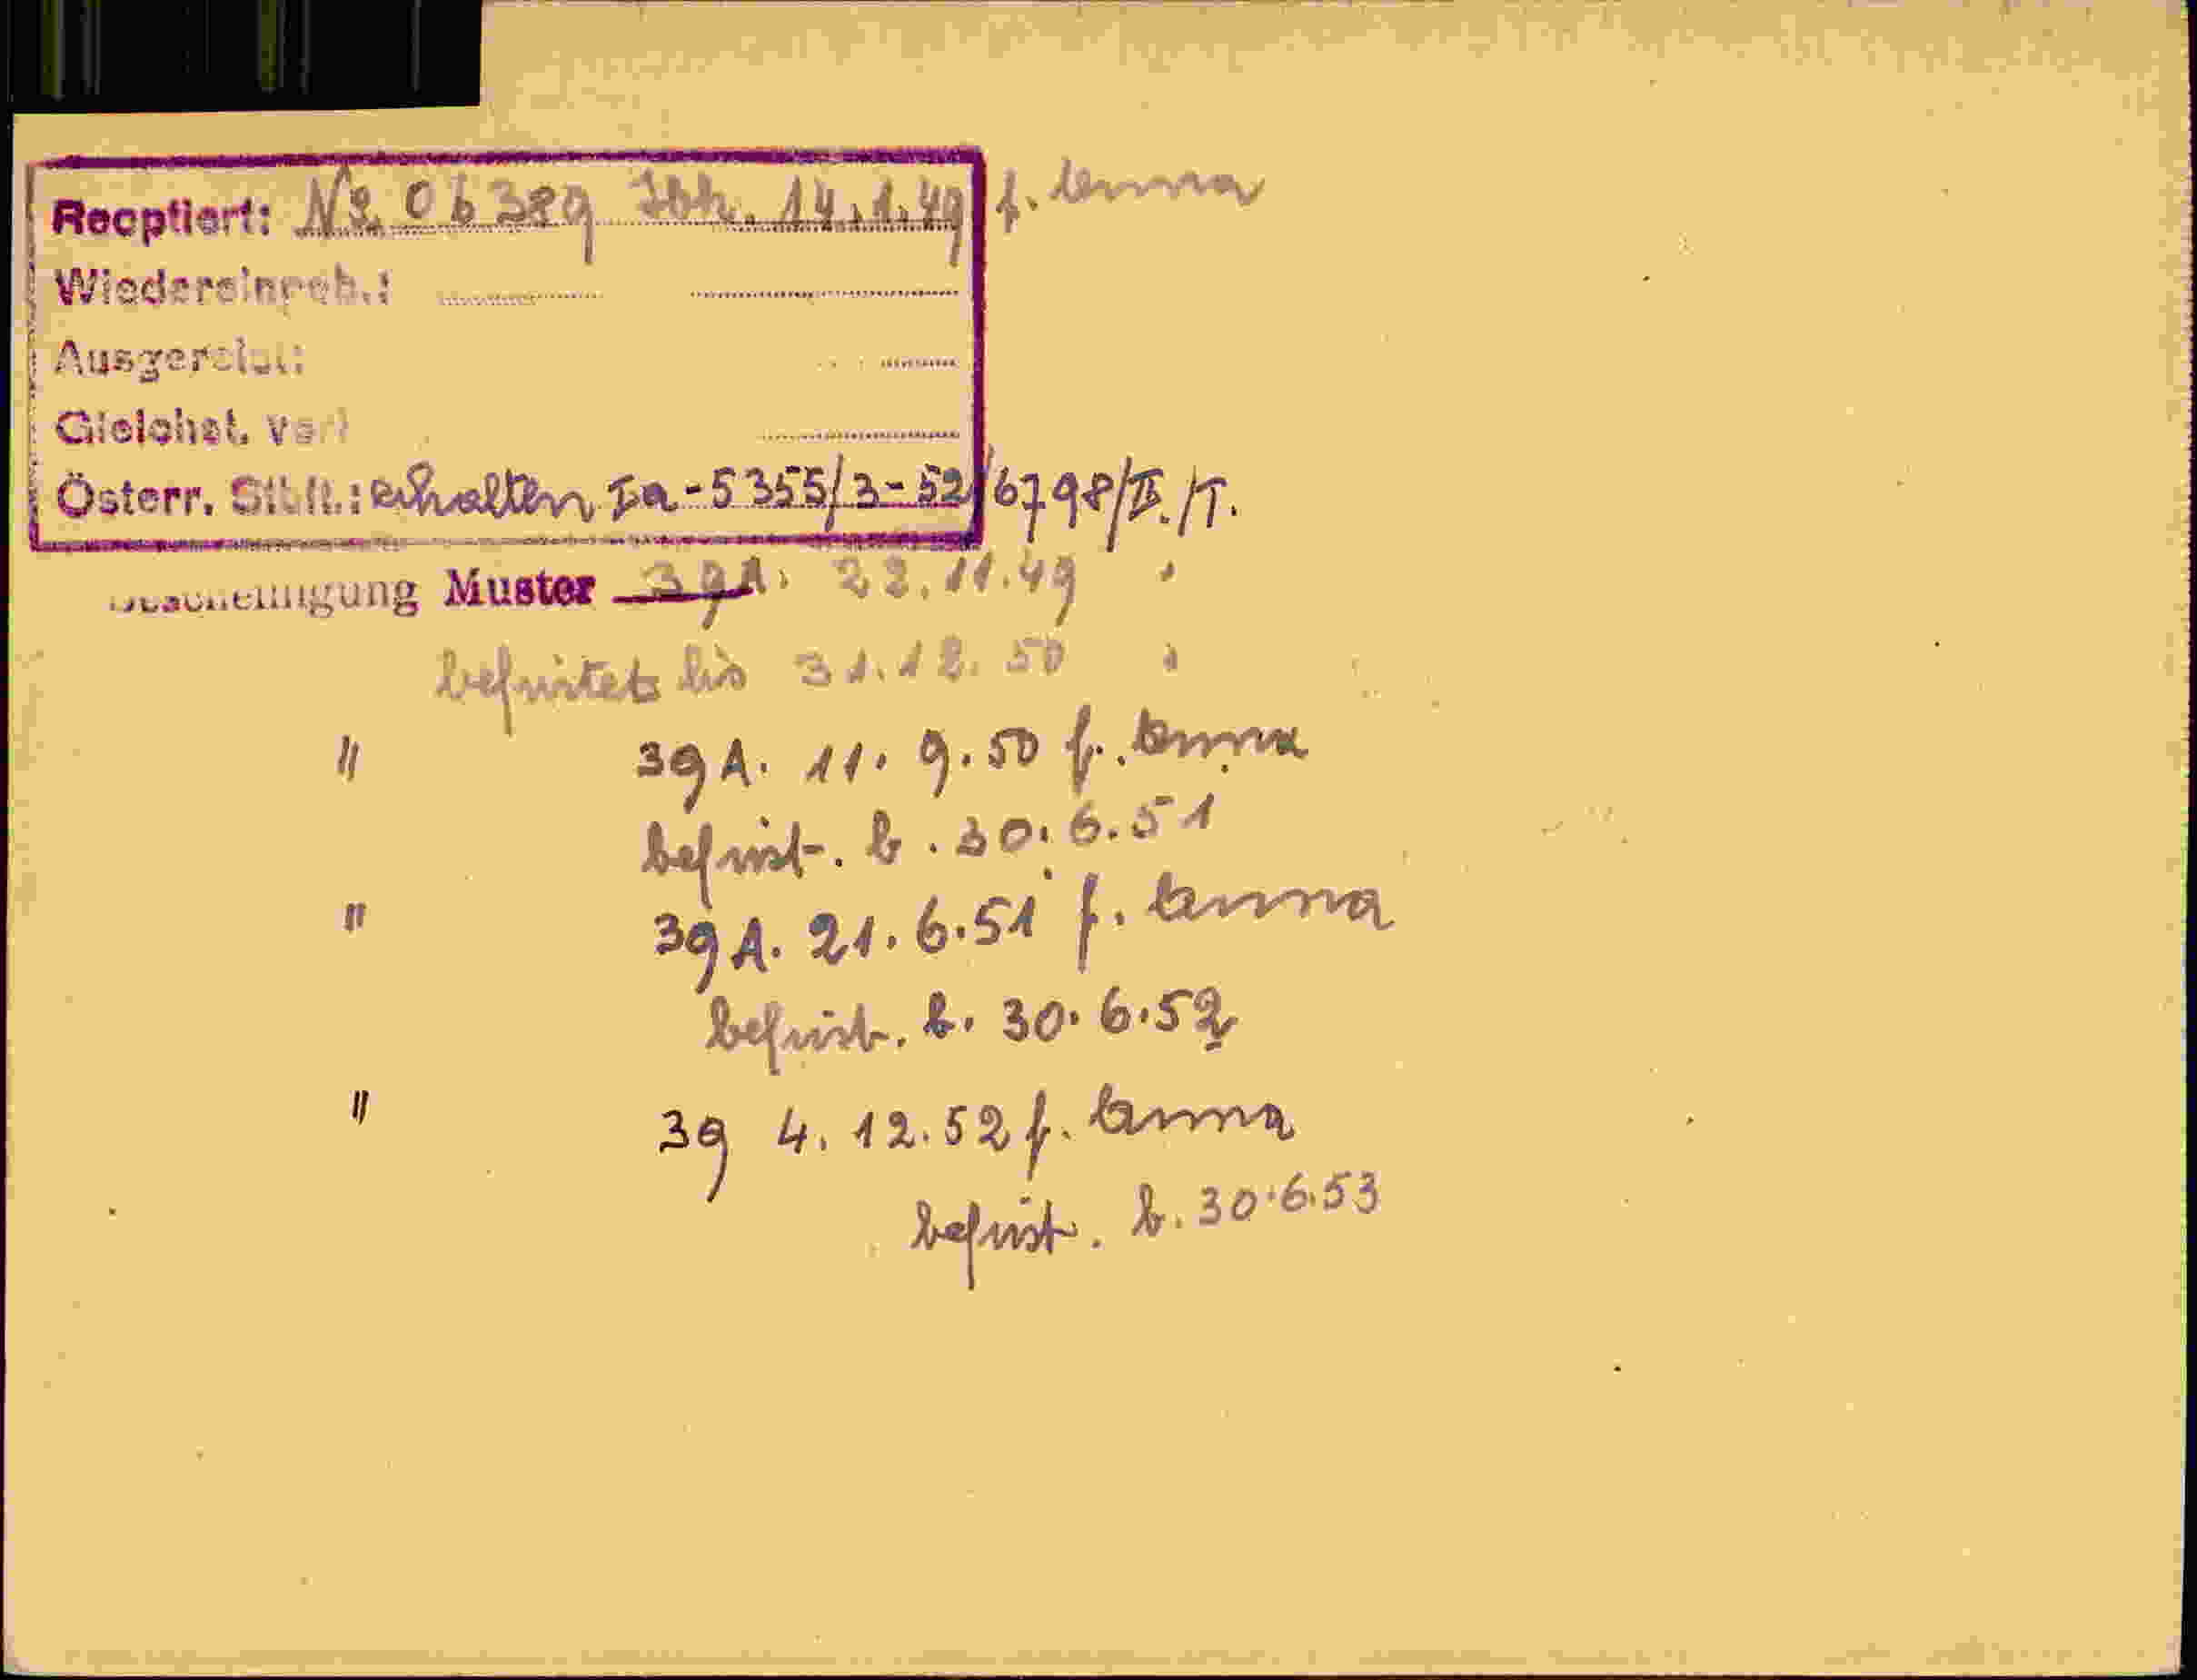 Reoptiert: No 06389 Ibk. 14.1.49 f. Anna
Wiedereinreb.:
Ausgereist:
Gleichst. verl
Österr. Stbft.: erhalten Ia-5355/3-52/6798/II./T.
Bescheinigung Muster 39A. 22.11.49 "
befristet bis 31.12.50 "
" 39A. 11.9.50 f. Anna
befrist. b. 30.6.51
" 39A. 21.6.51 f. Anna
befrist. b. 30.6.52
" 39 4.12.52 f. Anna
befrist. b. 30.6.53